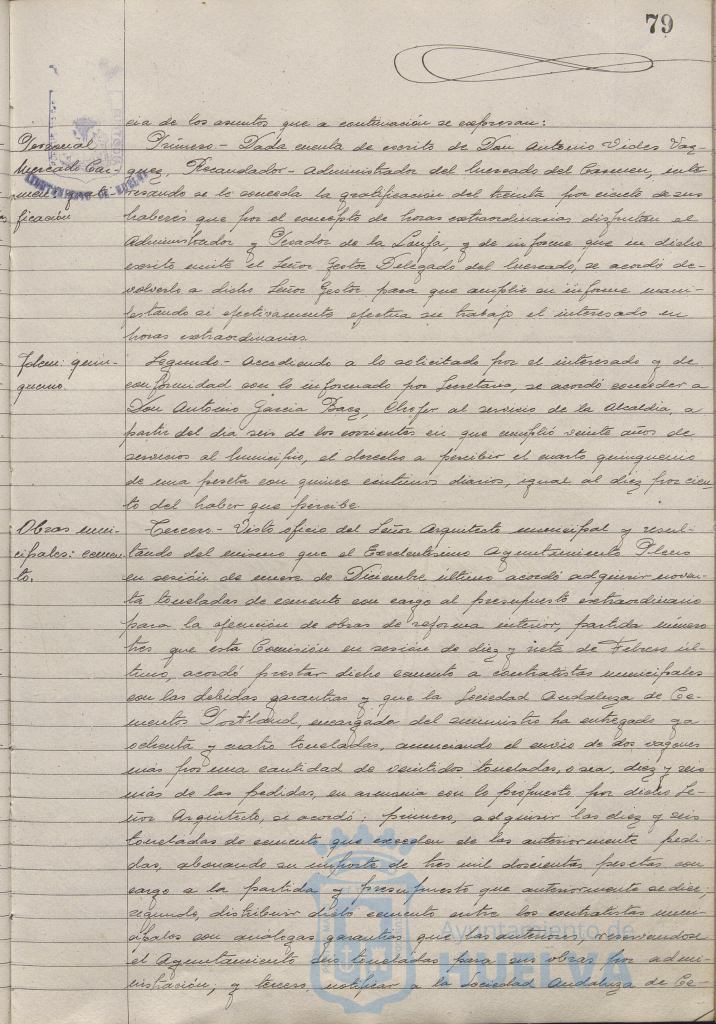 79
cia de los asuntos que a continuación se expresan:
Personal
Mercado Car-
men: grati-
ficación
Primero.- Dada cuenta de escrito de Don Antonio Vides Vaz-
quez, Recaudador-Administrador del Mercado del Carmen, inte-
resando se le conceda la gratificación del treinta por ciento de sus
haberes que por el concepto de horas extraordinarias disfrutan el
Administrador y Pesador de la Lonja, y de informe que en dicho
escrito emite el Señor Gestor Delegado del Mercado, se acordó de-
volverlo a dicho Señor Gestor para que amplíe su informe mani-
festando si efectivamente efectua su trabajo el interesado en
horas extraordinarias.
Idem: quin-
quenio.
Segundo.- Accediendo a lo solicitado por el interesado y de
conformidad con lo informado por Secretaria, se acordó conceder a
Don Antonio Garcia Baez, Chofer al servicio de la Alcaldia, a
partir del dia seis de los corrientes en que cumplió veinte años de
servicios al Municipio, el derecho a percibir el cuarto quinquenio
de una peseta con quince centimos diarios, igual al diez por cien-
to del haber que percibe.
Obras muni-
cipales: cemen-
to.
Tercero.- Visto oficio del Señor Arquitecto municipal y resul-
tando del mismo que el Excelentisimo Ayuntamiento Pleno
en sesión de nueve de Diciembre último acordó adquirir noven-
ta toneladas de cemento con cargo al presupuesto extraordinario
para la ejecución de obras de reforma interior, partida número
tres que esta Comisión en sesión de diez y siete de Febrero úl-
timo, acordó prestar dicho cemento a contratistas municipales
con las debidas garantias y que la Sociedad Andaluza de Ce-
mentos Portland, encargada del suministro ha entregado ya
ochenta y cuatro toneladas, anunciando el envio de dos vagones
más por una cantidad de veintidos toneladas, o sea, diez y seis
más de las pedidas, en armonia con lo propuesto por dicho Se-
ñor Arquitecto, se acordó: primero, adquirir las diez y seis
toneladas de cemento que exceden de las anteriormente pedi-
das, abonando su importe de tres mil doscientas pesetas con
cargo a la partida y presupuesto que anteriormente se dice;
segundo, distribuir dicho cemento entre los contratistas muni-
cipales con analogas garantias que las anteriores, reservandose
el Ayuntamiento seis toneladas para sus obras por admi-
nistración; y tercero, notificar a la Sociedad Andaluza de Ce-
Ayuntamiento de
HUELVA